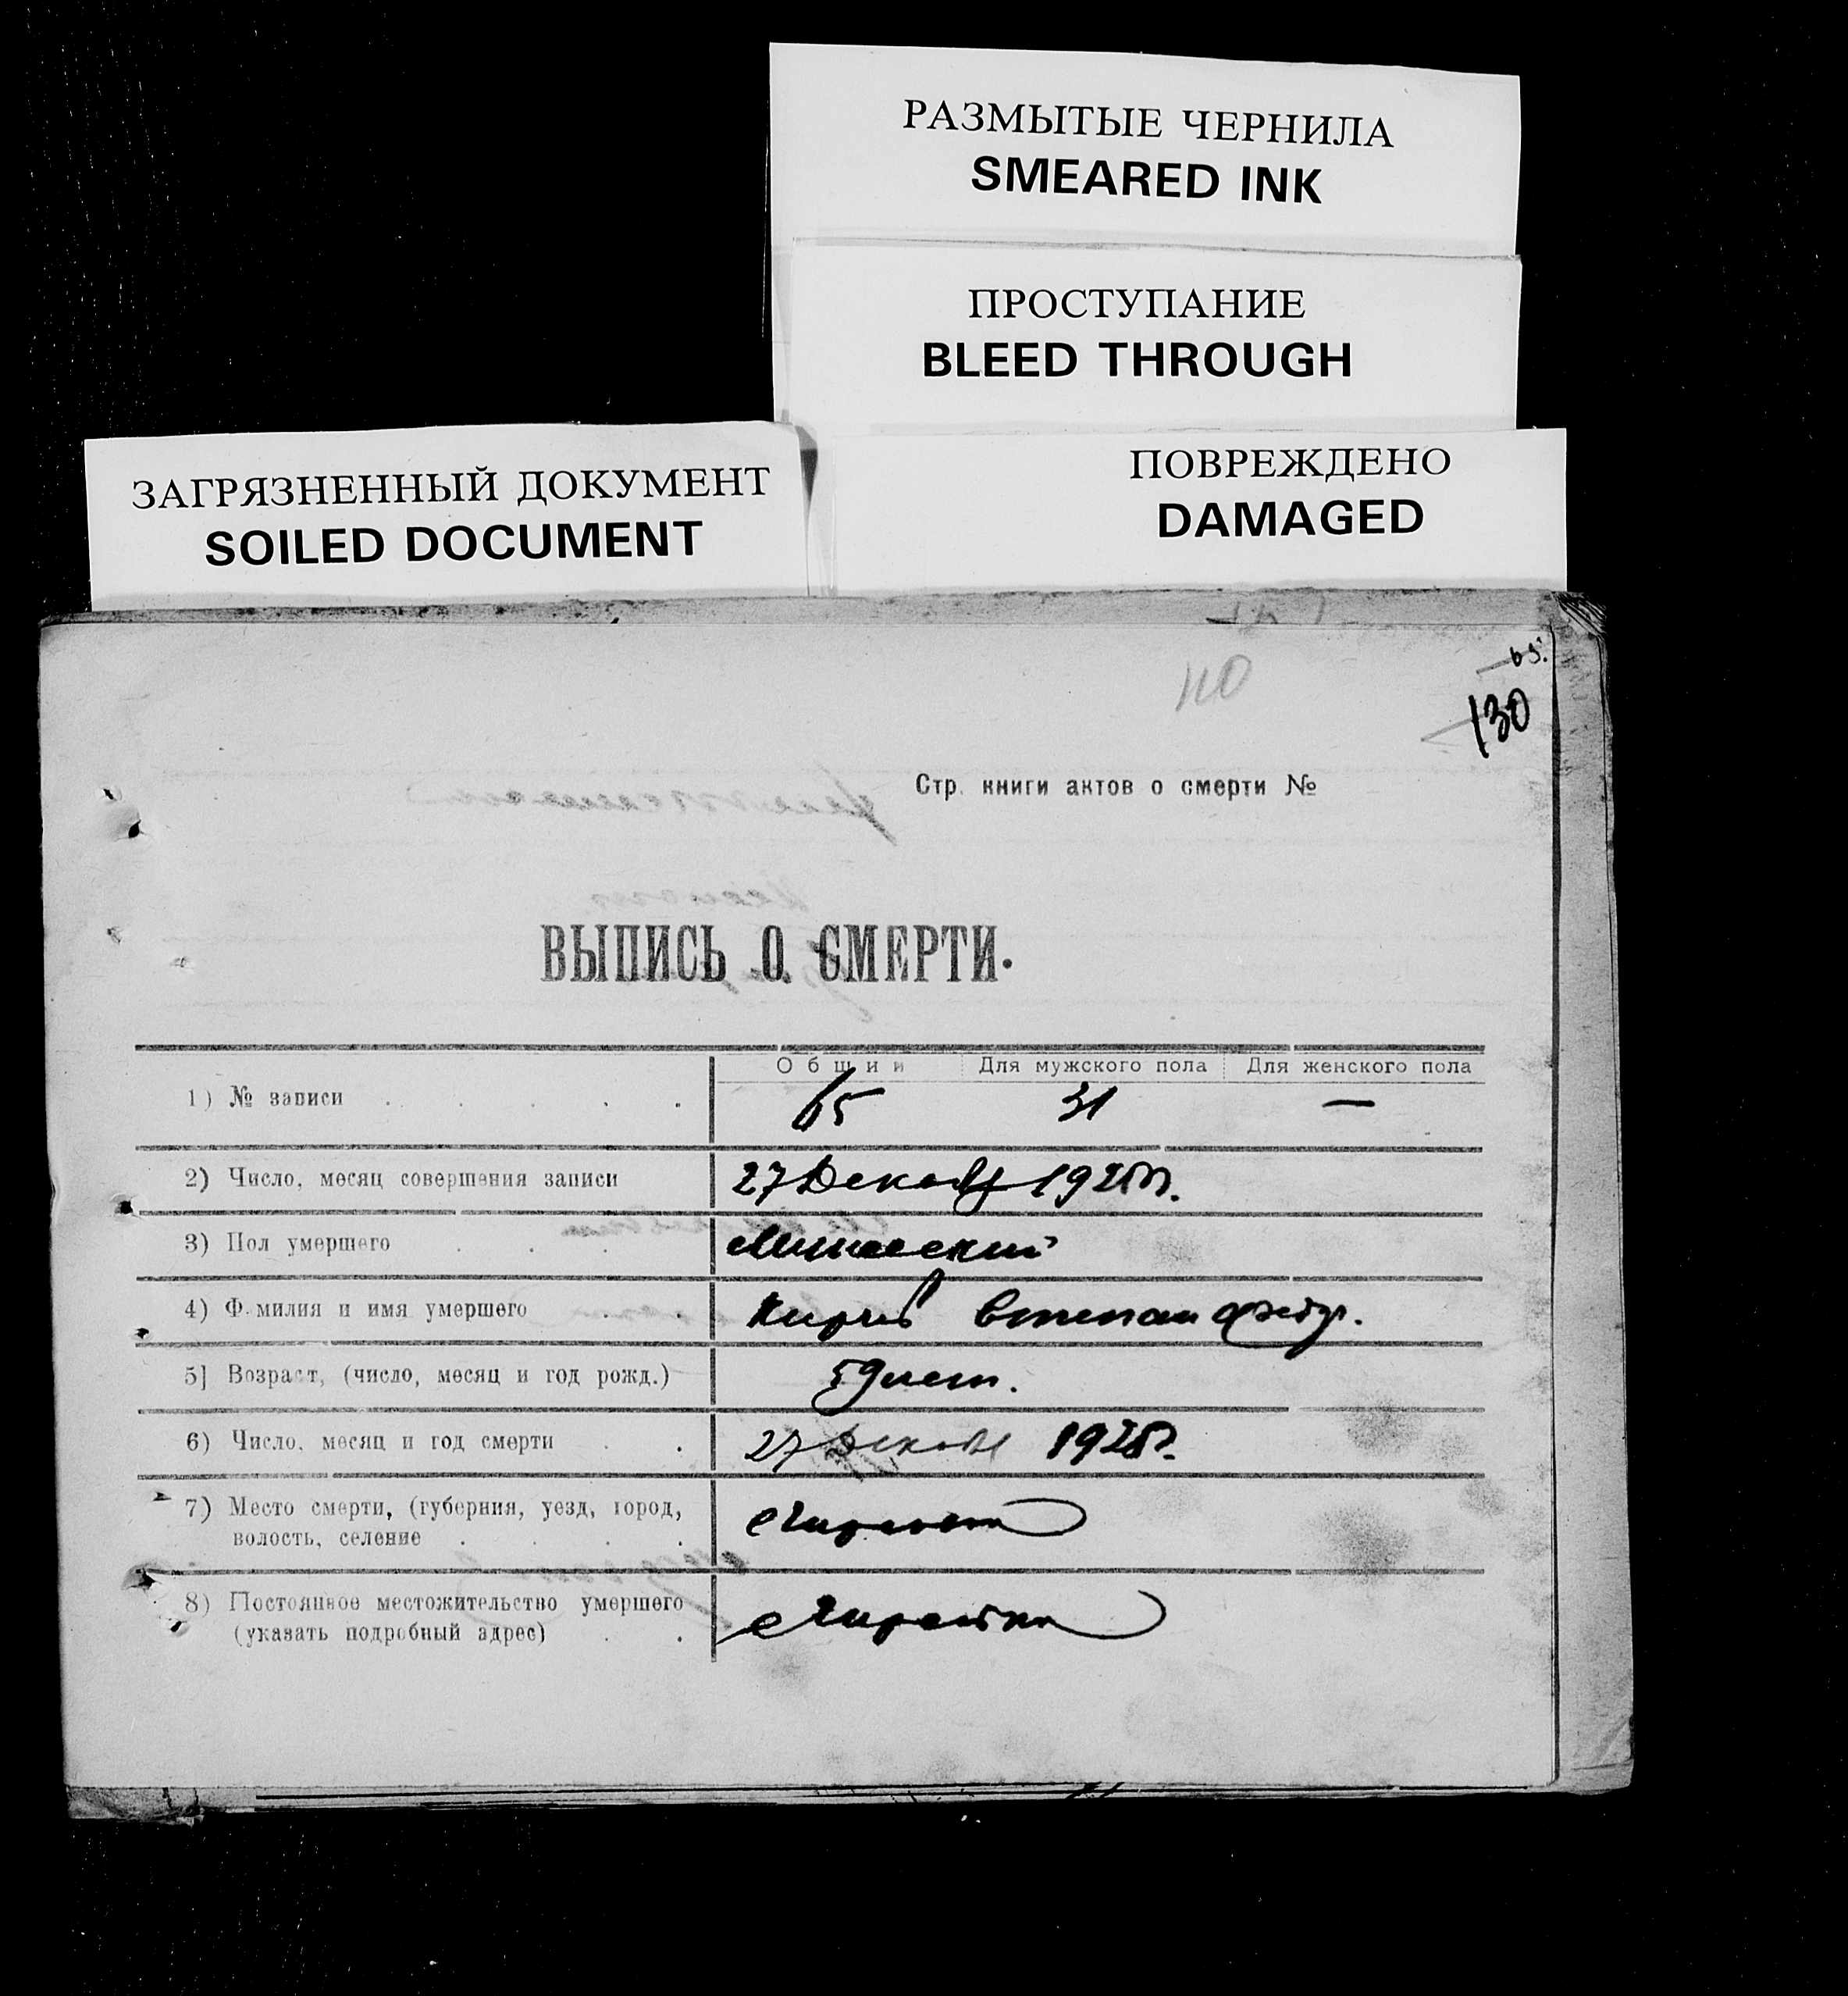 РАЗМЫТЫЕ ЧЕРНИЛА
SMEARED INK
ПРОСТУПАНИЕ
BLEED THROUGH
ЗАГРЯЗНЕННЫЙ ДОКУМЕНТ
SOILED DOCUMENT
ПОВРЕЖДЕНО
DAMAGED
110
65.
130
Стр. книги актов о смерти №
ВЫПИСЬ О СМЕРТИ.
Общии Для мужского пола Для женского пола
1) № записи 65 31 —
2) Число, месяц совершения записи 27 Декабр
3) Пол умершего Мужеский
4) Фамилия и имя умершего Степан
5] Возраст, (число, месяц и год рожд.) 59 лет.
6) Число, месяц и год смерти 27 Декабр
7) Место смерти, (губерния, уезд, город,
волость, селение
8) Постоянное местожительство умершего
(указать подробный адрес)